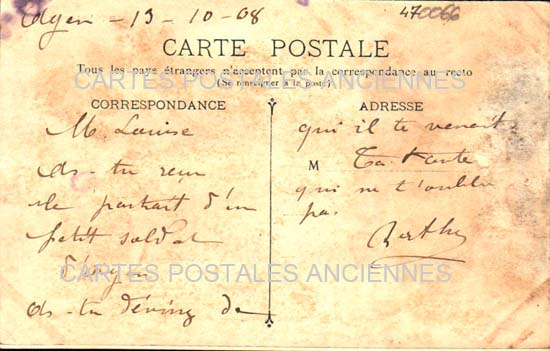 Agen - 13 - 10 - 08
470066
CARTE POSTALE
Tous les pays étrangers n'acceptent pas la correspondance au recto
(Se renseigner à la poste)
CARTES POSTALES ANCIENNES
CORRESPONDANCE
M. Louise
as-tu reçu
le portrait d'un
petit soldat
CARTES POSTALES ANCIENNES
as-tu deviné de
ADRESSE
qui il te venait
M
Ta tante
qui ne t'oublie
pas.
Berthe